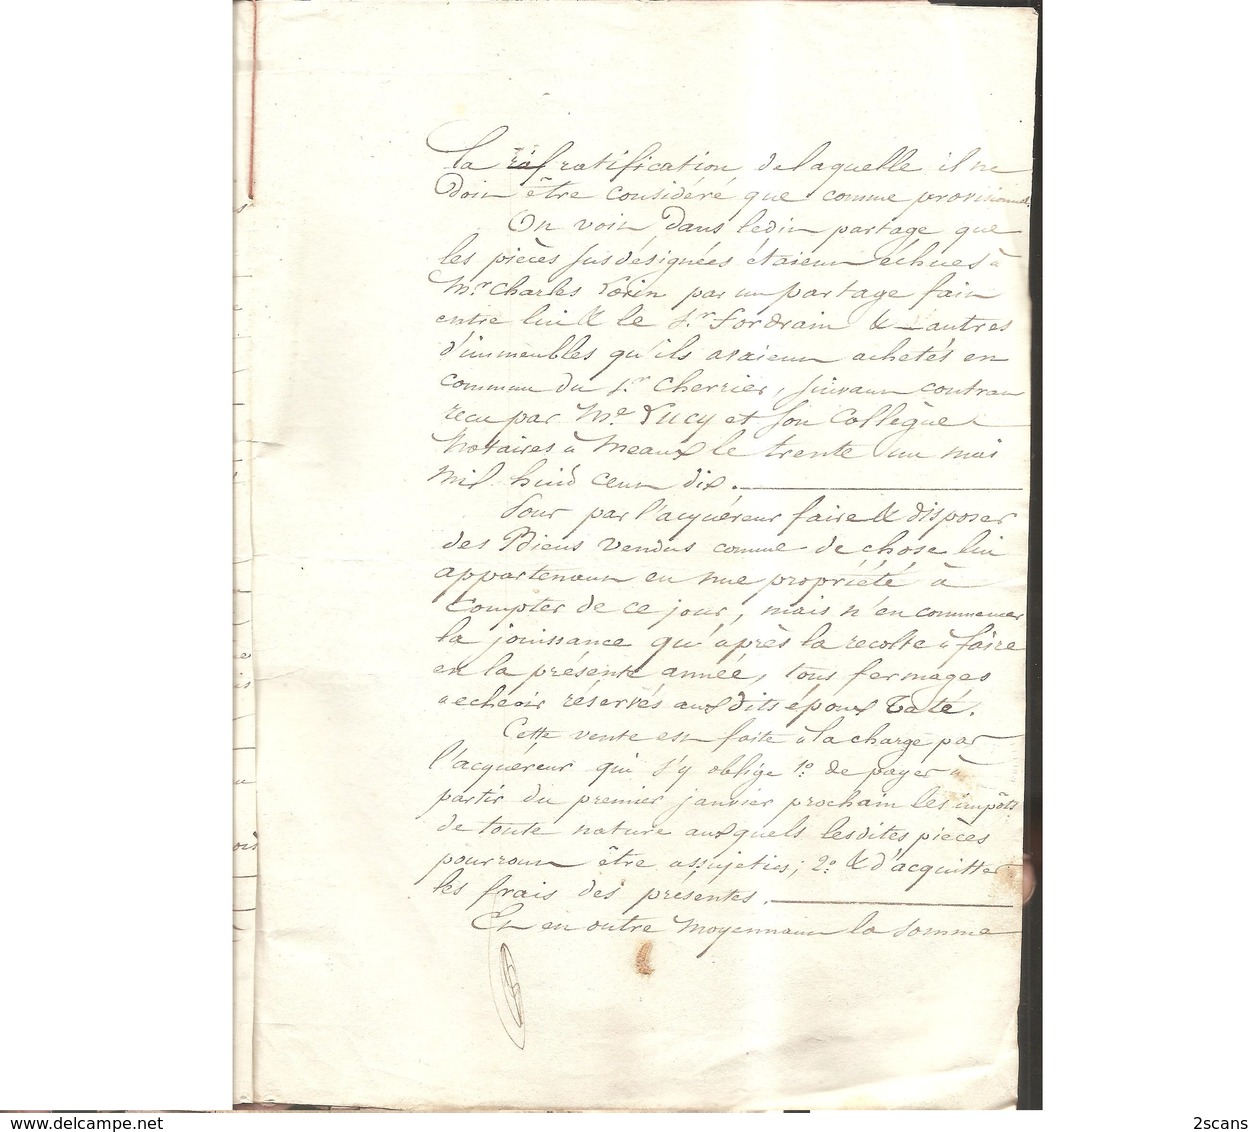 la ratification de laquelle il ne
doit être considéré que comme provisionnel.
On voit dans ledit partage que
les pièces susdésignées étaient échues à
Mr. Charles Lorin par un partage fait
entre lui & le Sr. Fordrain & autres
d'immeubles qu'ils avaient achetés en
commun du Sr. Cherrier, suivant contrat
reçu par Me. Lucy et son Collègue
Notaires à Meaux le trente un mai
mil huit cent dix.
Pour par l'acquéreur faire & disposer
des Biens vendus comme de chose lui
appartenant en nue propriété à
Compter de ce jour, mais n'en commencer
la jouissance qu'après la récolte à faire
en la présente année, tous fermages
a echeoir réservés auxdits époux Taté.
Cette vente est faite à la charge par
l'acquéreur qui s'y oblige 1o. de payer à
partir du premier janvier prochain les impôts
de toute nature auxquels lesdites pièces
pourront être assujeties; 2o. & d'acquitter
les frais des présentes.
Et en outre Moyennant la somme
2scans